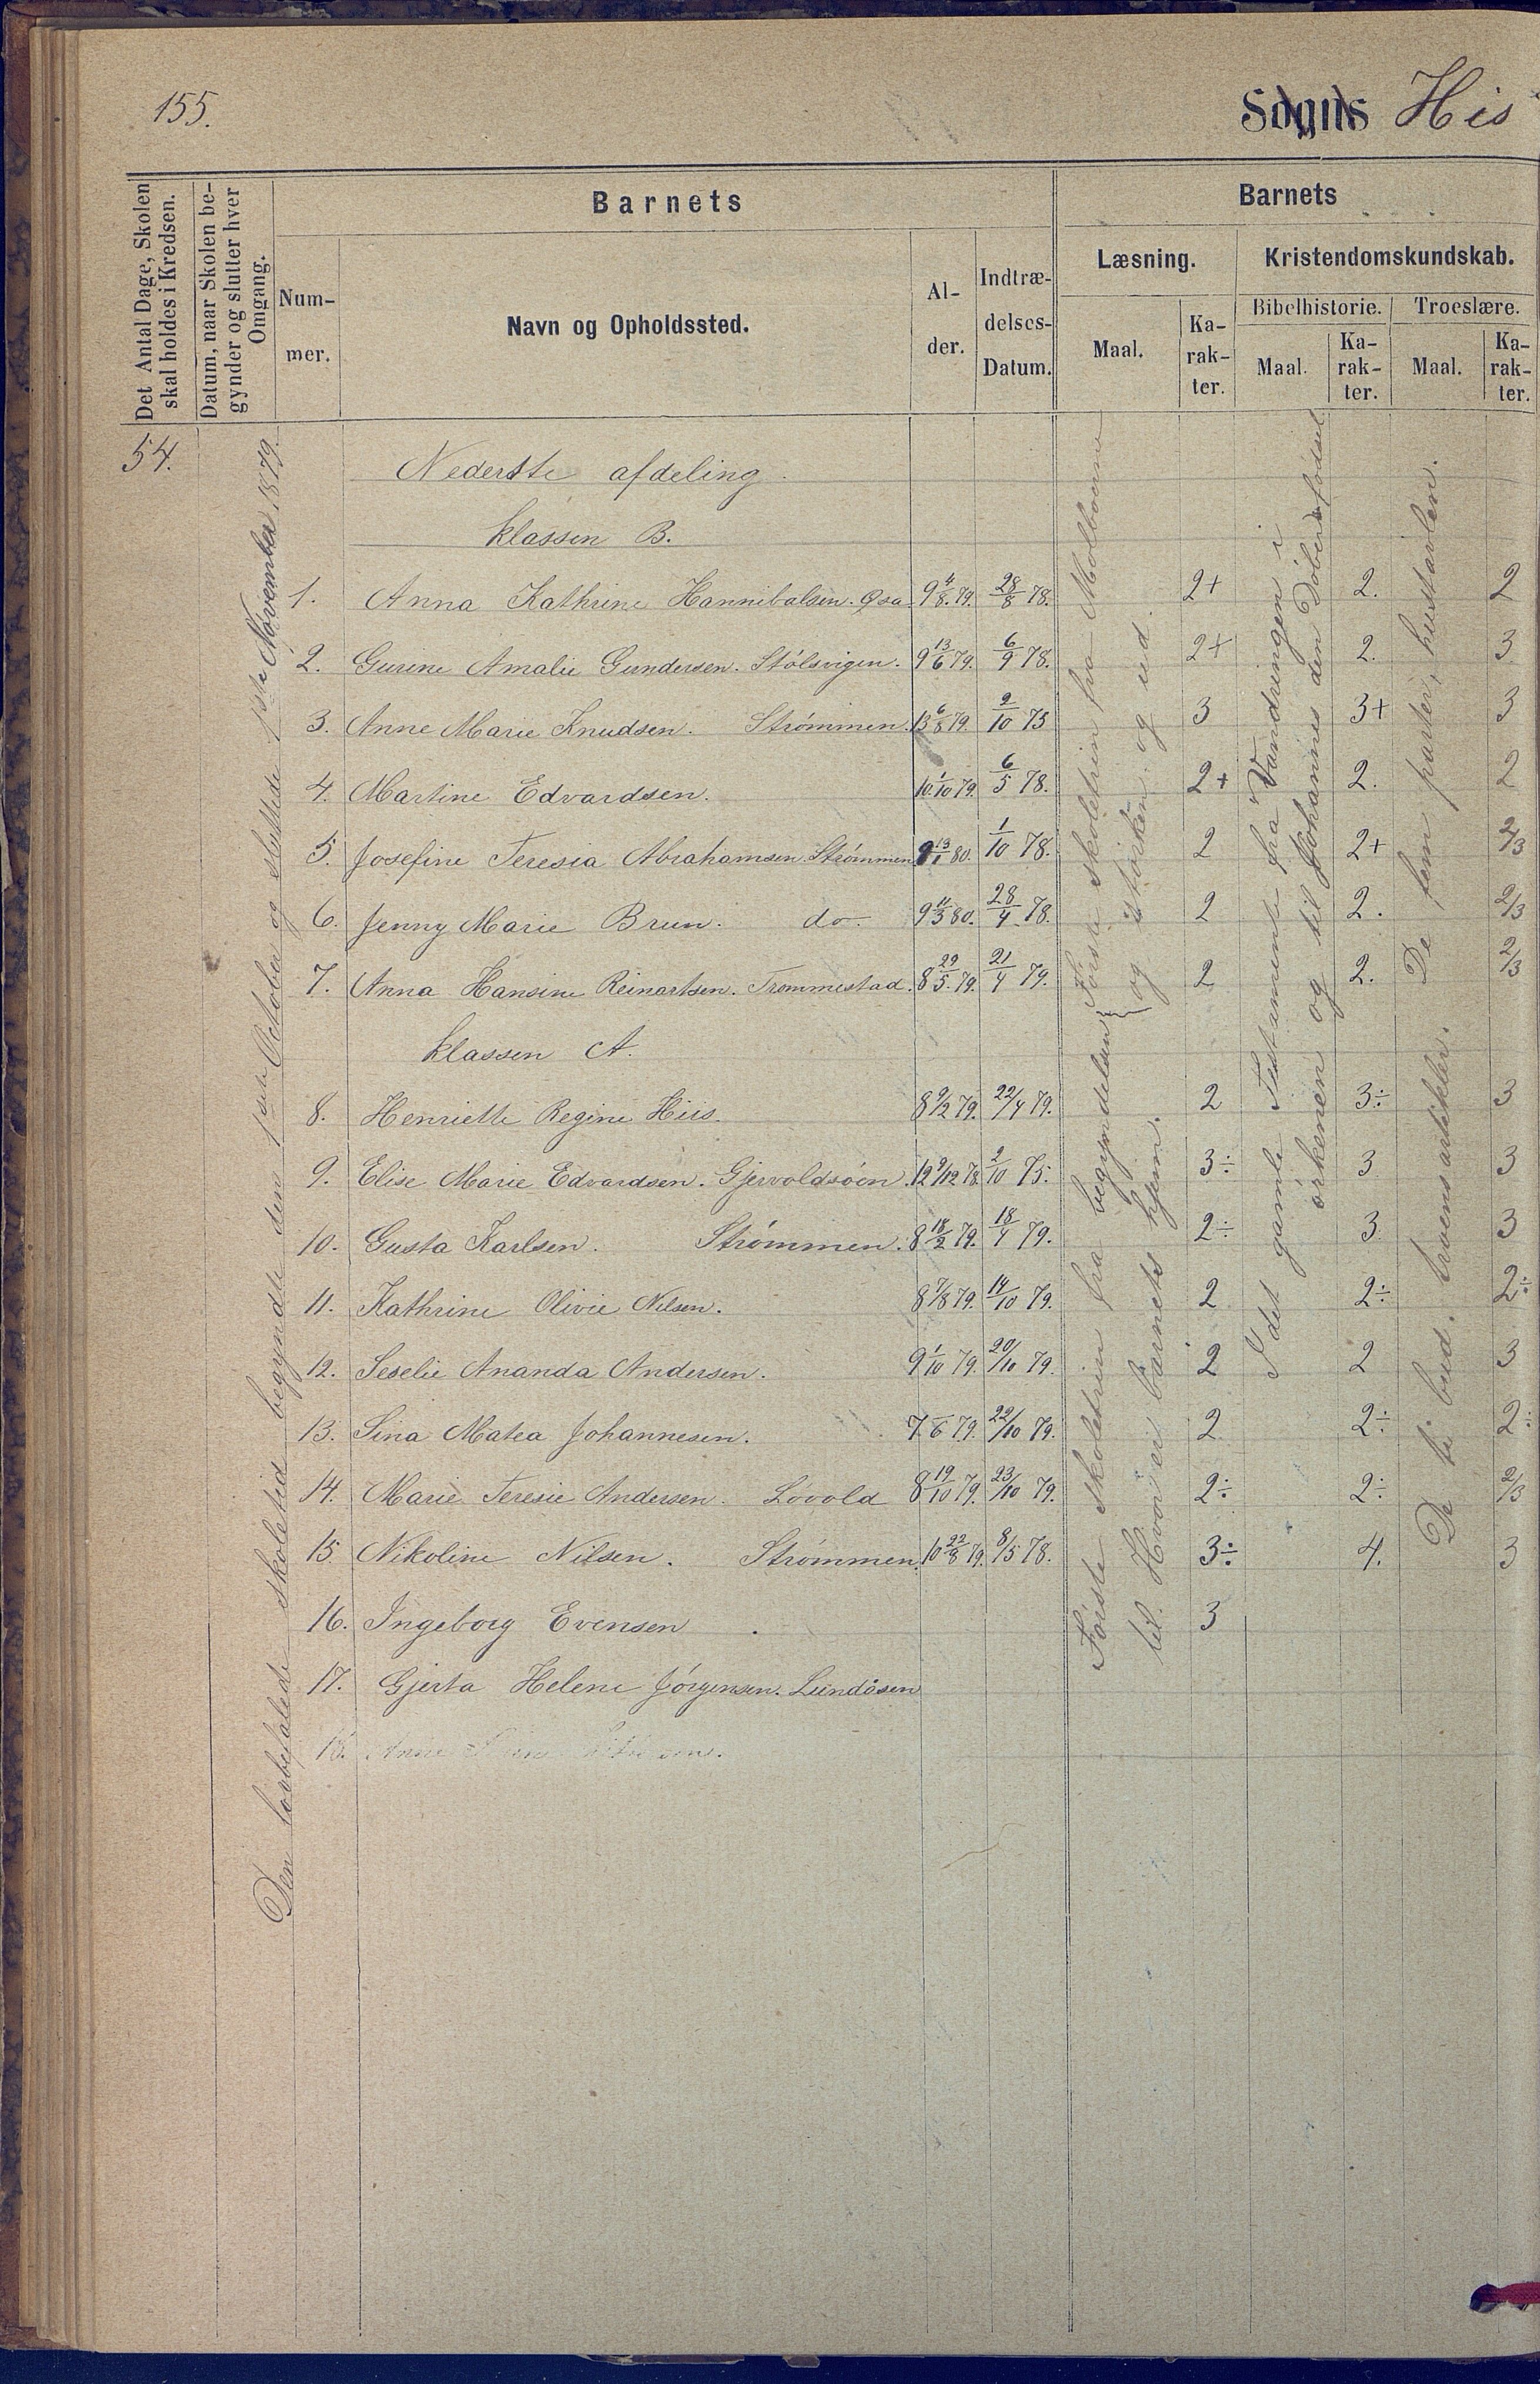 155.
Sogns His
Det Antal Dage, Skolen skal holdes i Kredsen.
Datum, naar Skolen begynder og slutter hver Omgang.
Barnets
Nummer.
Navn og Opholdssted.
Alder.
Indtrædelses-Datum.
Barnets
Læsning.
Maal.
Karakter.
Kristendomskundskab.
Bibelhistorie.
Maal.
Karakter.
Troeslære.
Maal.
Karakter.
54.
Den lovbefalede skoletid begyndte den 1ste October og sluttede 1ste November 1879.
Nederste afdeling.
klassen B.
1. Anna Kathrine Hannibalsen. 9 4/8 79. 28/8 78. 2+ 2. 2
2. Gurine Amalie Gundersen. Stölsvigen. 9 13/6 79. 6/9 78. 2+ 2. 3
3. Anne Marie Knudsen. Strömmen. 13 6/8 79. 2/10 73 3 3+ 3
4. Martine Edvardsen. 10 1/10 79. 6/5 78. 2+ 2. 2
5. Josefine Teresia Abrahamsen. Strömmen 9 13/1 80. 1/10 78. 2 2+ 2/3
6. Jenny Marie Brun. do. 9 11/3 80. 28/4 78. 2 2. 2/3
7. Anna Hansine Reinartsen. Trommestad. 8 29/5 79. 21/4 79. 2 2. 2/3
klassen A.
8. Henriette Regine Hiis. 8 9/2 79. 22/4 79. 2 3÷ 3
9. Elise Marie Edvardsen. Gjervoldsöen. 12 9/12 78. 2/10 75. 3÷ 3 3
10. Gusta Karlsen. Strömmen. 8 18/2 79. 18/4 79. 2÷ 3 3
11. Kathrine Olivie Nilsen. 8 7/8 79. 14/10 79. 2 2÷ 2÷
12. Seselie Ananda Andersen. 9 1/10 79. 20/10 79. 2 2 3
13. Sina Matea Johannesen. 7 -/6 79. 22/10 79. 2 2÷ 2÷
14. Marie Teresie Andersen. Lövold 8 19/10 79. 23/10 79. 2÷ 2÷ 2/3
15. Nikoline Nilsen. Strömmen. 10 22/8 79. 8/5 78. 3÷ 4. 3
16. Ingeborg Evensen. 3
17. Gjerta Helene Jörgensen. Lundösen
18. Anne
Förste skoletrin fra Molboerne
og störken og ud.
Förste skoletrin fra begyndelsen
til Hvor er barnets hjem.
I det gamle Testamente fra Vandringen i
örkenen og til Johannes den Döbers födsel
De fem parter, hustavlen.
De ti bud. troens artikler.